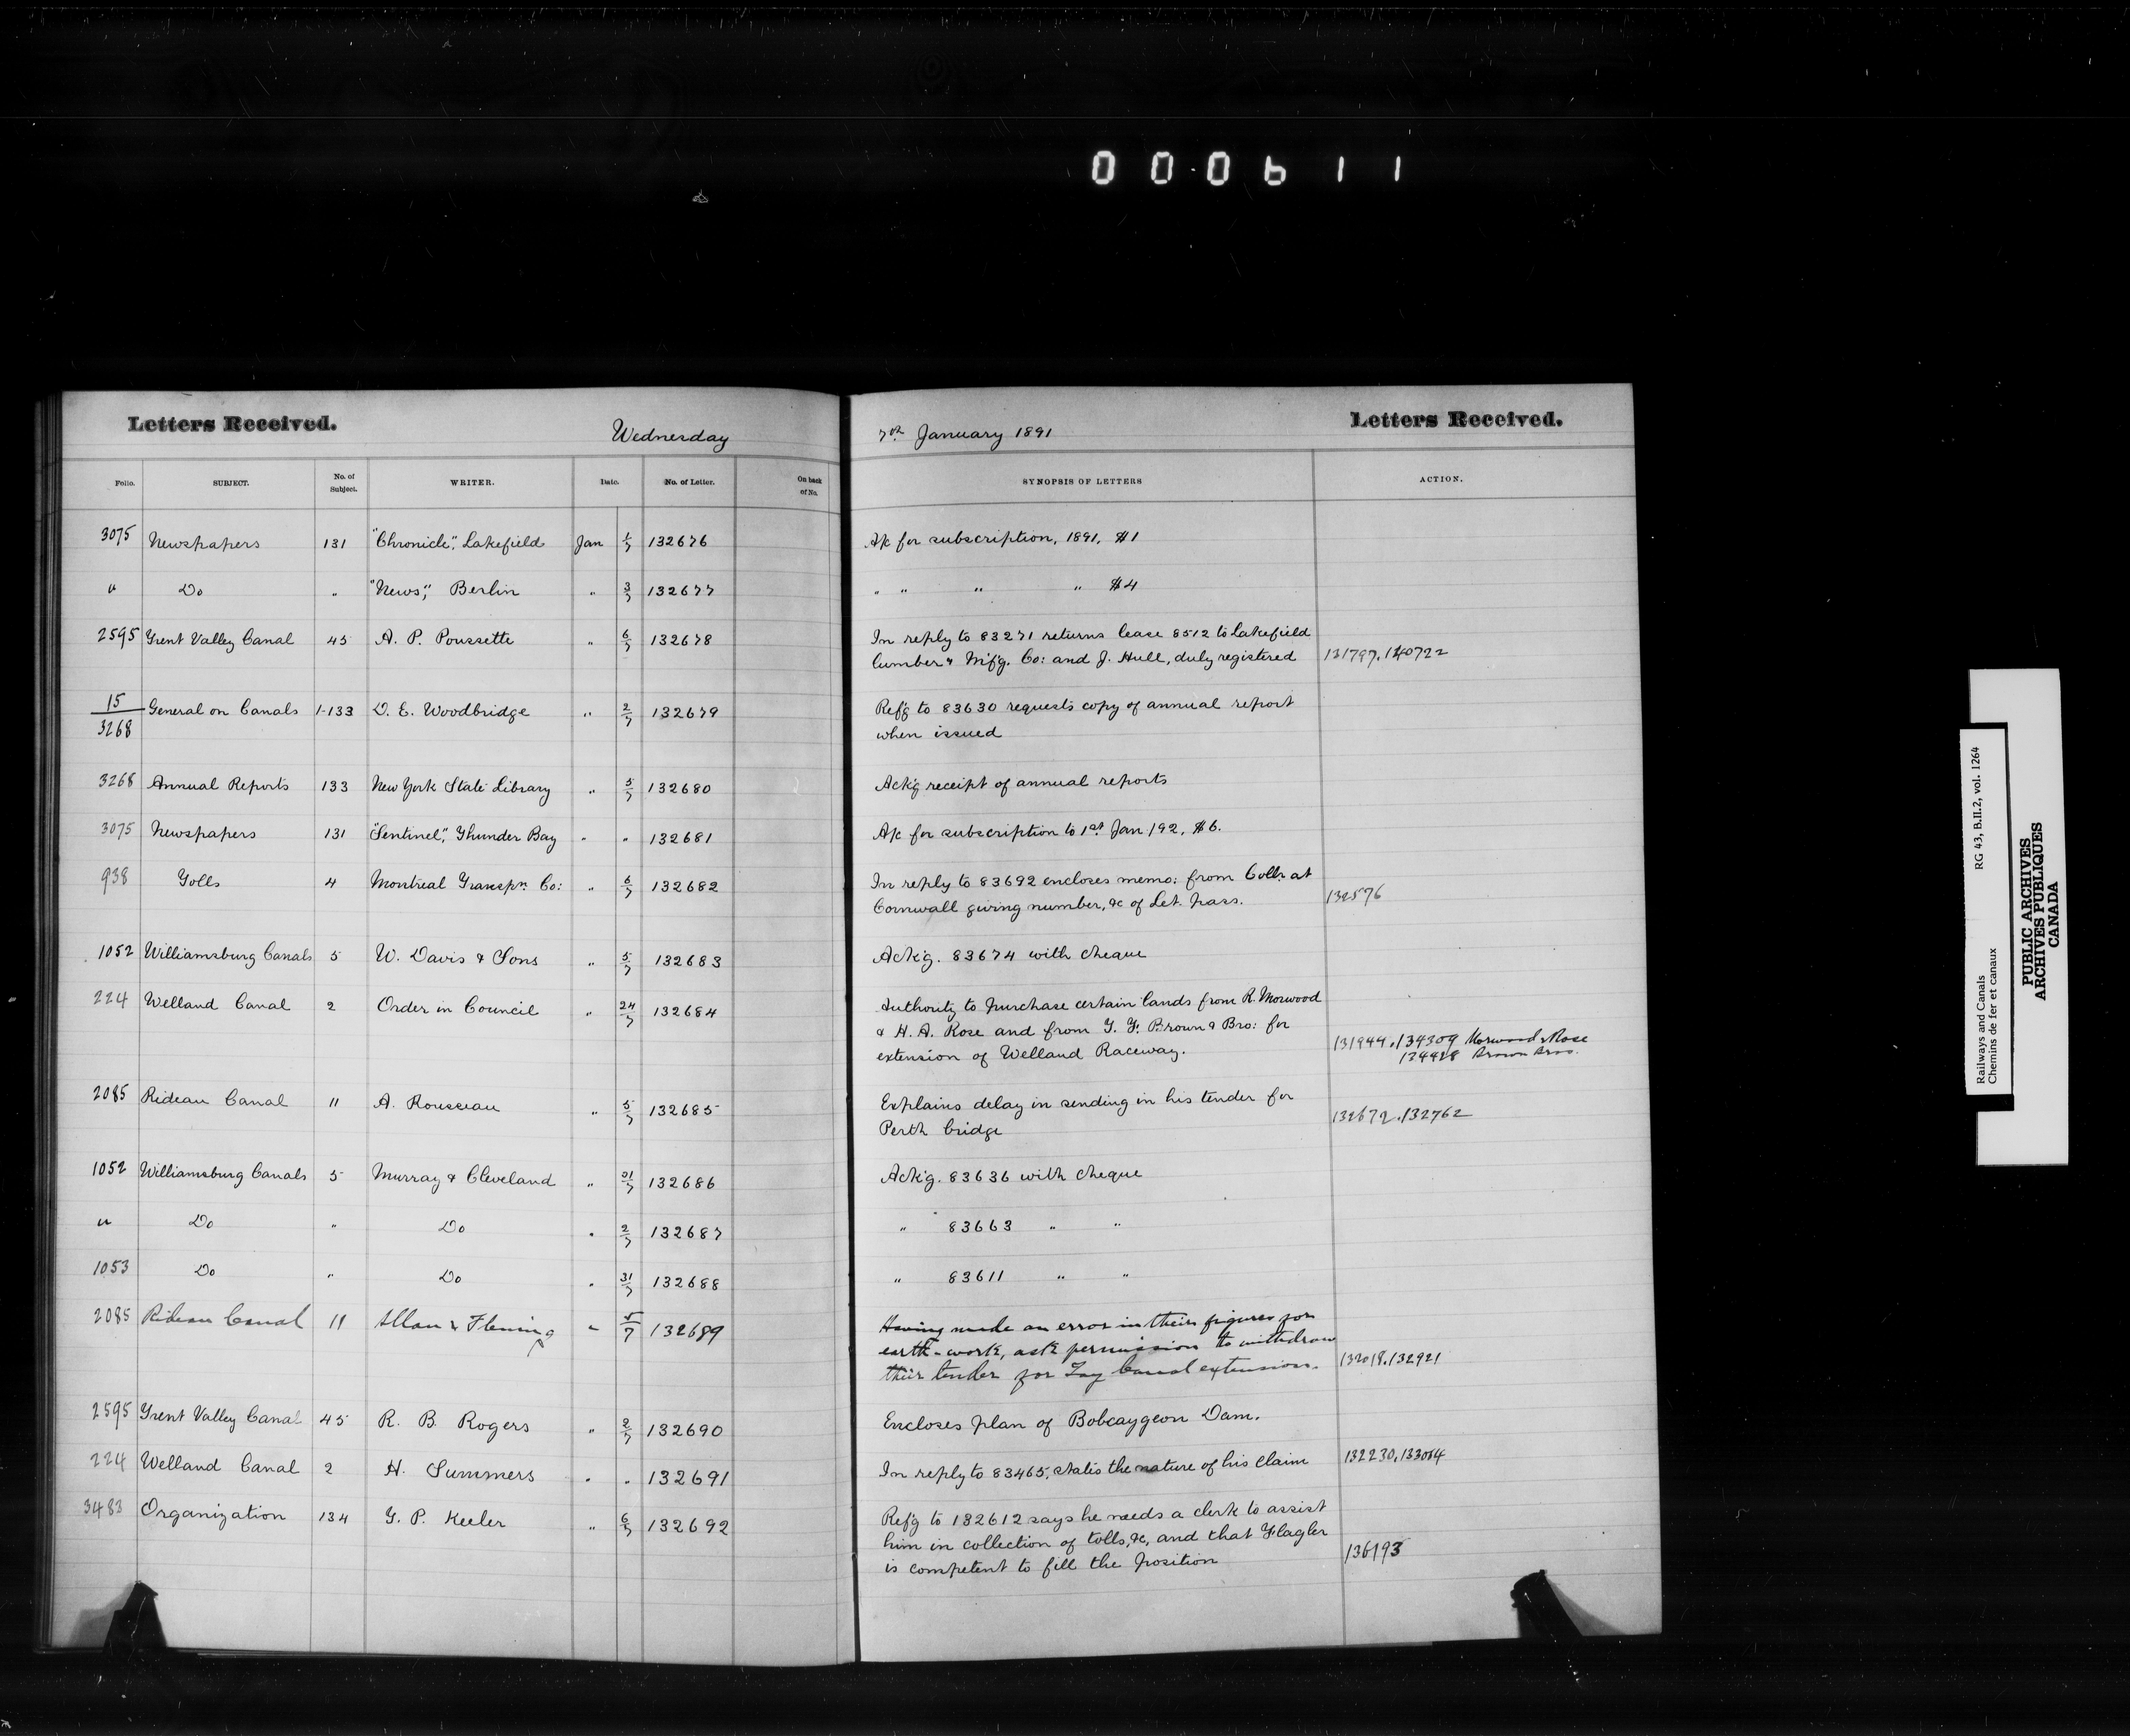 000611
Letters Received.
Wednesday
7th January 1891
Letters Received.
Folio. SUBJECT. No. of Subject. WRITER. Date. No. of Letter. On back of No. SYNOPSIS OF LETTERS ACTION.
3075 Newspapers 131 "Chronicle", Lakefield Jan 2/7 132676 A/c for subscription, 1891, $1
" Do " "News", Berlin " 3/7 132677 " " " " $4
2595 Trent Valley Canal 45 A. P. Poussette " 6/7 132678 In reply to 83271 returns lease 8512 to Lakefield
lumber & M'f'g. Co: and J. Hull, duly registered 131797.140722
15/3268 General on Canals 1-133 D. E. Woodbridge " 2/7 132679 Ref'g to 83630 requests copy of annual report
when issued
3268 Annual Reports 133 New York State Library " 5/7 132680 Ack'g receipt of annual reports
3075 Newspapers 131 "Sentinel", Thunder Bay " " 132681 A/c for subscription to 1st Jan '92, $6.
938 Tolls 4 Montreal Transpn. Co: " 6/7 132682 In reply to 83692 encloses memo: from Collr. at
Cornwall giving number, &c of Let. pass. 132576
1052 Williamsburg Canals 5 W. Davis & Sons " 5/7 132683 Ack'g. 83674 with cheque
224 Welland Canal 2 Order in Council " 24/7 132684 Authority to purchase certain lands from R. Morwood
& H. A. Rose and from T. F. Brown & Bro: for
extension of Welland Raceway. 131944.134309 Morwood & Rose
134428 Brown Bros.
2085 Rideau Canal 11 A. Rousseau " 5/7 132685 Explains delay in sending in his tender for
Perth bridge 132672.132762
1052 Williamsburg Canals 5 Murray & Cleveland " 31/7 132686 Ack'g. 83636 with cheque
" Do " Do " 2/7 132687 " 83663 " "
1053 Do " Do " 31/7 132688 " 83611 " "
2085 Rideau Canal 11 Allan & Fleming " 5/7 132689 Having made an error in their figures for
earth-work, ask permission to withdraw
their tender for Tay Canal extension. 132019.132921
2595 Trent Valley Canal 45 R. B. Rogers " 2/7 132690 Encloses plan of Bobcaygeon Dam.
224 Welland Canal 2 H. Summers " " 132691 In reply to 83465, states the nature of his claim 132230,133064
3483 Organization 134 T. P. Keeler " 6/7 132692 Ref'g to 132612 says he needs a clerk to assist
him in collection of tolls, &c, and that Flagler
is competent to fill the position 136193
Railways and Canals RG 43, B.II.2, vol. 1264
Chemins de fer et canaux
PUBLIC ARCHIVES
ARCHIVES PUBLIQUES
CANADA